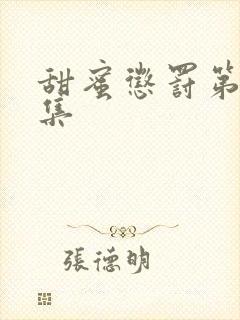 甜蜜懲罰第
集
張德明